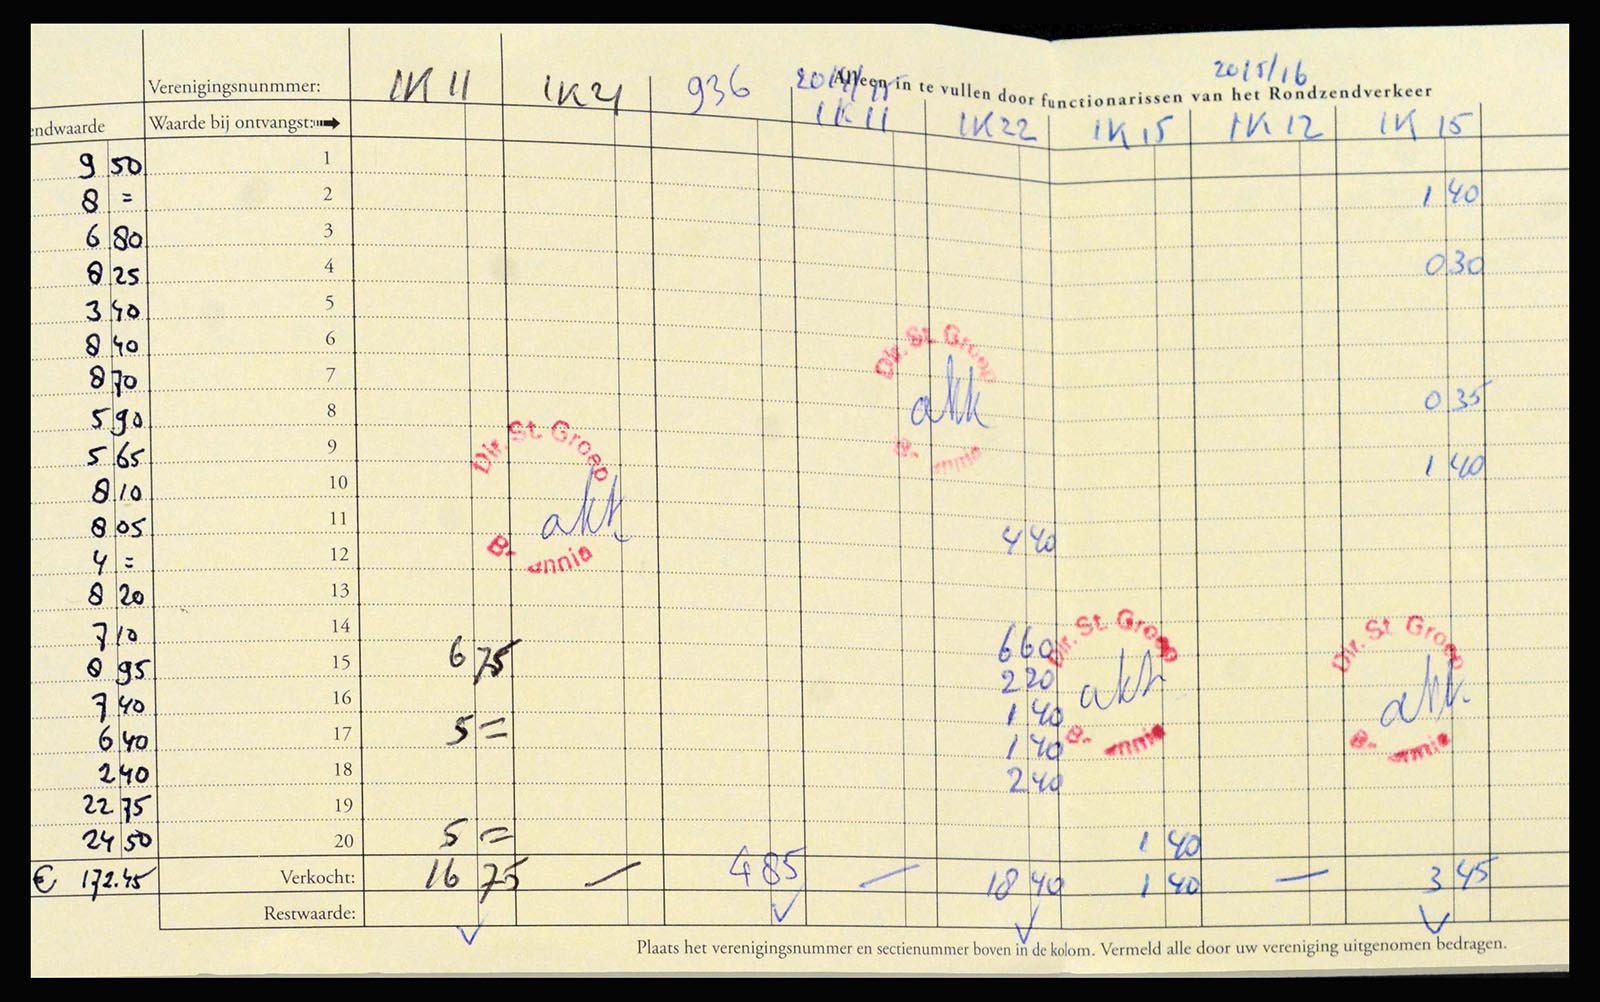 2015/16
Alleen in te vullen door functionarissen van het Rondzendverkeer
Verenigingsnunmmer: 1K 11 1K 21 936 1K 11 1K 22 1K 15 1K 12 1K 15
endwaarde Waarde bij ontvangst:
9 50 1
8 = 2 1 40
6 80 3
8 25 4 0 30
3 40 5
8 40 6
8 70 7
5 90 8 0 35
5 65 9
8 10 10 1 40
8 05 11
4 = 12 4 40
8 20 13
7 10 14
8 95 15 6 75 6 60
7 40 16 2 20
6 40 17 5 = 1 40
2 40 18 1 40
22 75 19 2 40
24 50 20 5 = 1 40
€ 172.45 Verkocht: 16 75 — 4 85 — 18 40 1 40 — 3 45
Restwaarde:
Dir. St. Groep
akk
B- nnie
Dir. St. Groep
akk
B- nnie
Dir. St. Groep
akk
B- nnie
Dir. St. Groep
akk
B- nnie
Plaats het verenigingsnummer en sectienummer boven in de kolom. Vermeld alle door uw vereniging uitgenomen bedragen.